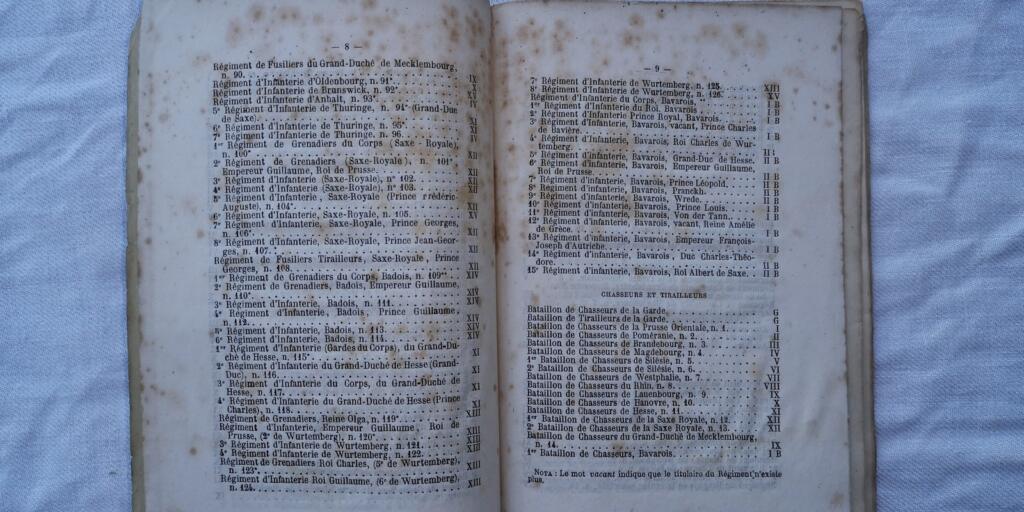 — 8 —
Régiment de Fusiliers du Grand-Duché de Mecklembourg,
n. 90. IX
Régiment d'Infanterie d'Oldenbourg, n. 91* X
Régiment d'Infanterie de Brunswick, n. 92* X
Régiment d'Infanterie d'Anhalt, n. 93* IV
5e Régiment d'Infanterie de Thuringe, n. 94* (Grand-Duc
de Saxe). XI
6e Régiment d'Infanterie de Thuringe, n. 95* XI
7e Régiment d'Infanterie de Thuringe, n. 96. IV
1er Régiment de Grenadiers du Corps (Saxe-Royale),
n. 100* XII
2e Régiment de Grenadiers (Saxe-Royale), n. 101*
Empereur Guillaume, Roi de Prusse. XII
3e Régiment d'Infanterie (Saxe-Royale), n° 102. XII
4e Régiment d'Infanterie (Saxe-Royale), n° 103. XII
5e Régiment d'Infanterie, Saxe-Royale (Prince Frédéric-
Auguste), n. 104*. XII
6e Régiment d'Infanterie, Saxe-Royale, n. 105. XV
7e Régiment d'Infanterie, Saxe-Royale, Prince Georges,
n. 106*. XII
8e Régiment d'Infanterie, Saxe-Royale, Prince Jean-Geor-
ges, n. 107. XII
Régiment de Fusiliers Tirailleurs, Saxe-Royale, Prince
Georges, n. 108. XII
1er Régiment de Grenadiers du Corps, Badois, n. 109** XIV
2e Régiment de Grenadiers, Badois, Empereur Guillaume,
n. 110*. XIV
3e Régiment d'Infanterie, Badois, n. 111. XIV
4e Régiment d'Infanterie, Badois, Prince Guillaume,
n. 112. XIV
5e Régiment d'Infanterie, Badois, n. 113. XIV
6e Régiment d'Infanterie, Badois, n. 114.
1er Régiment d'Infanterie (Gardes du Corps), du Grand-Du-
ché de Hesse, n. 115* XI
2e Régiment d'Infanterie du Grand-Duché de Hesse (Grand-
Duc), n. 116. XI
3e Régiment d'Infanterie du Corps, du Grand-Duché de
Hesse, n. 117. XI
4e Régiment d'Infanterie du Grand-Duché de Hesse (Prince
Charles), n. 118. XI
Régiment de Grenadiers, Reine Olga, n. 119* XIII
Régiment d'Infanterie, Empereur Guillaume, Roi de
Prusse, (2e de Wurtemberg), n. 120*. XIII
3e Régiment d'Infanterie de Wurtemberg, n. 121. XIII
4e Régiment d'Infanterie de Wurtemberg, n. 122. XIII
Régiment de Grenadiers Roi Charles, (5e de Wurtemberg),
n. 123*. XIII
Régiment d'Infanterie Roi Guillaume, (6e de Wurtemberg),
n. 124. XIII
— 9 —
7e Régiment d'Infanterie de Wurtemberg, n. 125. XIII
8e Régiment d'Infanterie de Wurtemberg, n. 126. XV
Régiment d'Infanterie du Corps, Bavarois, I B
1er Régiment d'Infanterie du Roi, Bavarois I B
2e Régiment d'Infanterie Prince Royal, Bavarois. I B
3e Régiment d'Infanterie, Bavarois, vacant, Prince Charles
de Bavière. I B
4e Régiment d'Infanterie, Bavarois, Roi Charles de Wur-
temberg.
5e Régiment d'Infanterie, Bavarois, Grand-Duc de Hesse. II B
6e Régiment d'Infanterie, Bavarois, Empereur Guillaume,
Roi de Prusse.
7e Régiment d'Infanterie, Bavarois, Prince Léopold. II B
8e Régiment d'Infanterie, Bavarois, Pranckh. II B
9e Régiment d'Infanterie, Bavarois, Wrede. II B
10e Régiment d'Infanterie, Bavarois, Prince Louis. I B
11e Régiment d'Infanterie, Bavarois, Von der Tann. I B
12e Régiment d'Infanterie, Bavarois, vacant, Reine Amélie
de Grèce. I B
13e Régiment d'Infanterie, Bavarois, Empereur François-
Joseph d'Autriche. I B
14e Régiment d'Infanterie, Bavarois, Duc Charles-Théo-
dore. II B
15e Régiment d'Infanterie, Bavarois, Roi Albert de Saxe. II B
CHASSEURS ET TIRAILLEURS
Bataillon de Chasseurs de la Garde. G
Bataillon de Tirailleurs de la Garde. G
Bataillon de Chasseurs de la Prusse Orientale, n. 1. I
Bataillon de Chasseurs de Poméranie, n. 2. II
Bataillon de Chasseurs de Brandebourg, n. 3. III
Bataillon de Chasseurs de Magdebourg, n. 4. IV
1er Bataillon de Chasseurs de Silésie, n. 5. V
2e Bataillon de Chasseurs de Silésie, n. 6. VI
Bataillon de Chasseurs de Westphalie, n. 7. VII
Bataillon de Chasseurs du Rhin, n. 8. VIII
Bataillon de Chasseurs de Lauenbourg, n. 9. IX
Bataillon de Chasseurs de Hanovre, n. 10. X
Bataillon de Chasseurs de Hesse, n. 11. XI
1er Bataillon de Chasseurs de la Saxe Royale, n. 12. XII
2e Bataillon de Chasseurs de la Saxe Royale, n. 13. XII
Bataillon de Chasseurs du Grand-Duché de Mecklembourg,
n. 14. IX
1er Bataillon de Chasseurs, Bavarois. I B
NOTA : Le mot vacant indique que le titulaire du Régiment n'existe
plus.